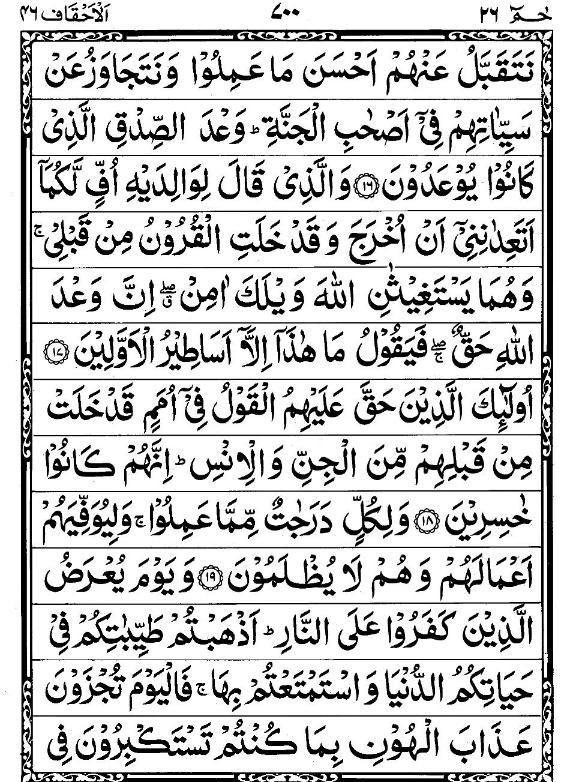 حٰمٓ ٢٦ ٧٠٠ اَلْاَحْقَاف ٤٦
نَتَقَبَّلُ عَنْهُمْ اَحْسَنَ مَا عَمِلُوْا وَنَتَجَاوَزُ عَنْ
سَيِّاٰتِهِمْ فِىْٓ اَصْحٰبِ الْجَنَّةِ ؕ وَعْدَ الصِّدْقِ الَّذِىْ
كَانُوْا يُوْعَدُوْنَ ١٦ وَالَّذِىْ قَالَ لِوَالِدَيْهِ اُفٍّ لَّكُمَآ
اَتَعِدٰنِنِىْٓ اَنْ اُخْرَجَ وَقَدْ خَلَتِ الْقُرُوْنُ مِنْ قَبْلِىْ ۚ
وَهُمَا يَسْتَغِيْثٰنِ اللّٰهَ وَيْلَكَ اٰمِنْ ۖق اِنَّ وَعْدَ
اللّٰهِ حَقٌّ ۖۚ فَيَقُوْلُ مَا هٰذَآ اِلَّآ اَسَاطِيْرُ الْاَوَّلِيْنَ ١٧
اُولٰٓئِكَ الَّذِيْنَ حَقَّ عَلَيْهِمُ الْقَوْلُ فِىْٓ اُمَمٍ قَدْ خَلَتْ
مِنْ قَبْلِهِمْ مِّنَ الْجِنِّ وَالْاِنْسِ ؕ اِنَّهُمْ كَانُوْا
خٰسِرِيْنَ ١٨ وَلِكُلٍّ دَرَجٰتٌ مِّمَّا عَمِلُوْا ۚ وَلِيُوَفِّيَهُمْ
اَعْمَالَهُمْ وَهُمْ لَا يُظْلَمُوْنَ ١٩ وَيَوْمَ يُعْرَضُ
الَّذِيْنَ كَفَرُوْا عَلَى النَّارِ ؕ اَذْهَبْتُمْ طَيِّبٰتِكُمْ فِىْ
حَيَاتِكُمُ الدُّنْيَا وَاسْتَمْتَعْتُمْ بِهَا ۚ فَالْيَوْمَ تُجْزَوْنَ
عَذَابَ الْهُوْنِ بِمَا كُنْتُمْ تَسْتَكْبِرُوْنَ فِى